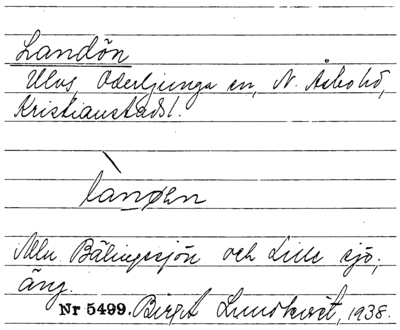 Landön
Ulvs, Oderljunga sn, N. Åsbo hd,
Kristianstads l.
lanøen
Mln Bälingesjön och Lille sjö;
äng.
Nr 5499. Birgit Lundkvist, 1938.